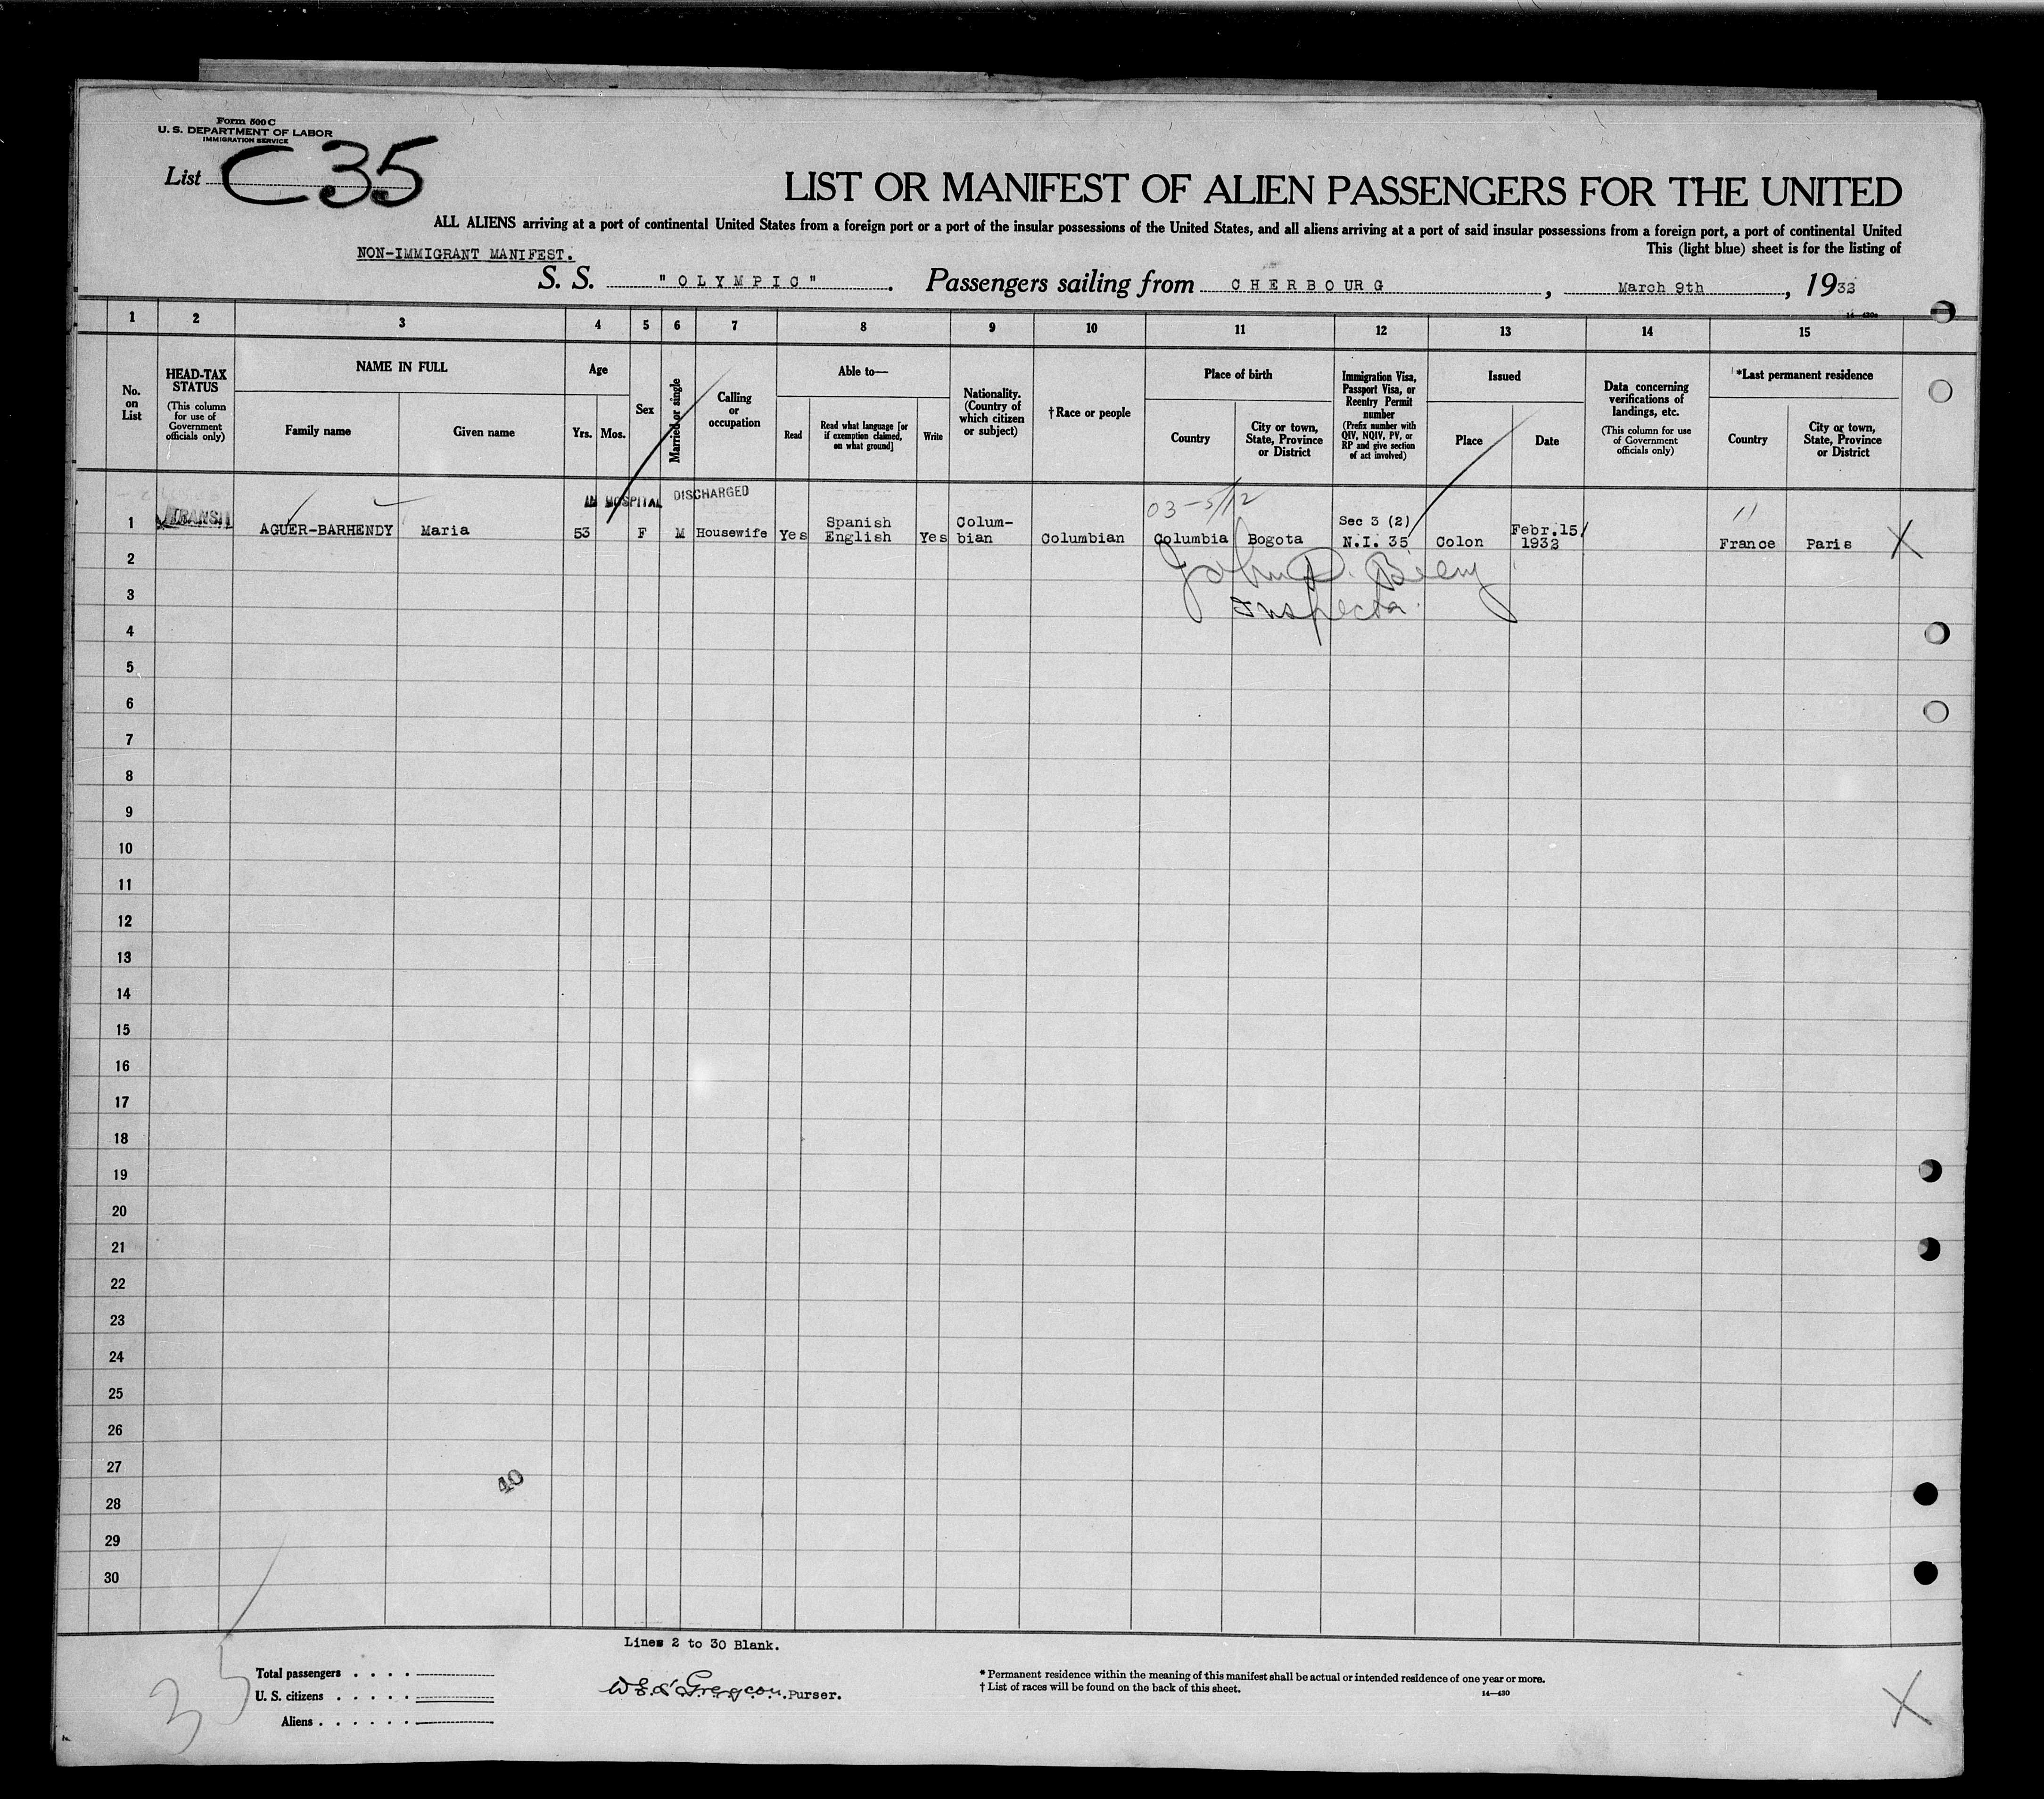 Form 500 C
U. S. DEPARTMENT OF LABOR
IMMIGRATION SERVICE
List C 35
LIST OR MANIFEST OF ALIEN PASSENGERS FOR THE UNITED
ALL ALIENS arriving at a port of continental United States from a foreign port or a port of the insular possessions of the United States, and all aliens arriving at a port of said insular possessions from a foreign port, a port of continental United
This (light blue) sheet is for the listing of
NON-IMMIGRANT MANIFEST.
S. S. "OLYMPIC". Passengers sailing from CHERBOURG, March 9th, 1933
1 2 3 4 5 6 7 8 9 10 11 12 13 14 15
No. on List
HEAD-TAX STATUS
(This column for use of Government officials only)
NAME IN FULL
Family name
Given name
Age
Yrs. Mos.
Sex
Married or single
Calling or occupation
Able to—
Read
Read what language [or if exemption claimed, on what ground]
Write
Nationality. (Country of which citizen or subject)
†Race or people
Place of birth
Country
City or town, State, Province or District
Immigration Visa, Passport Visa, or Reentry Permit number
(Prefix number with QIV, NQIV, PV, or RP and give section of act involved)
Issued
Place
Date
Data concerning verifications of landings, etc.
(This column for use of Government officials only)
*Last permanent residence
Country
City or town, State, Province or District
IN HOSPITAL DISCHARGED
03-5/12
1 TRANSIT AGUER-BARHENDY Maria 53 F M Housewife Yes Spanish English Yes Colum-bian Columbian Columbia Bogota Sec 3 (2) N.I. 35 Colon Febr.15/ 1933 France Paris X
John D.
Inspector
2
3
4
5
6
7
8
9
10
11
12
13
14
15
16
17
18
19
20
21
22
23
24
25
26
27
40
28
29
30
Lines 2 to 30 Blank.
Total passengers . . . .
U. S. citizens . . . . .
Aliens . . . . . .
35
Purser.
* Permanent residence within the meaning of this manifest shall be actual or intended residence of one year or more.
† List of races will be found on the back of this sheet.
14—430
X